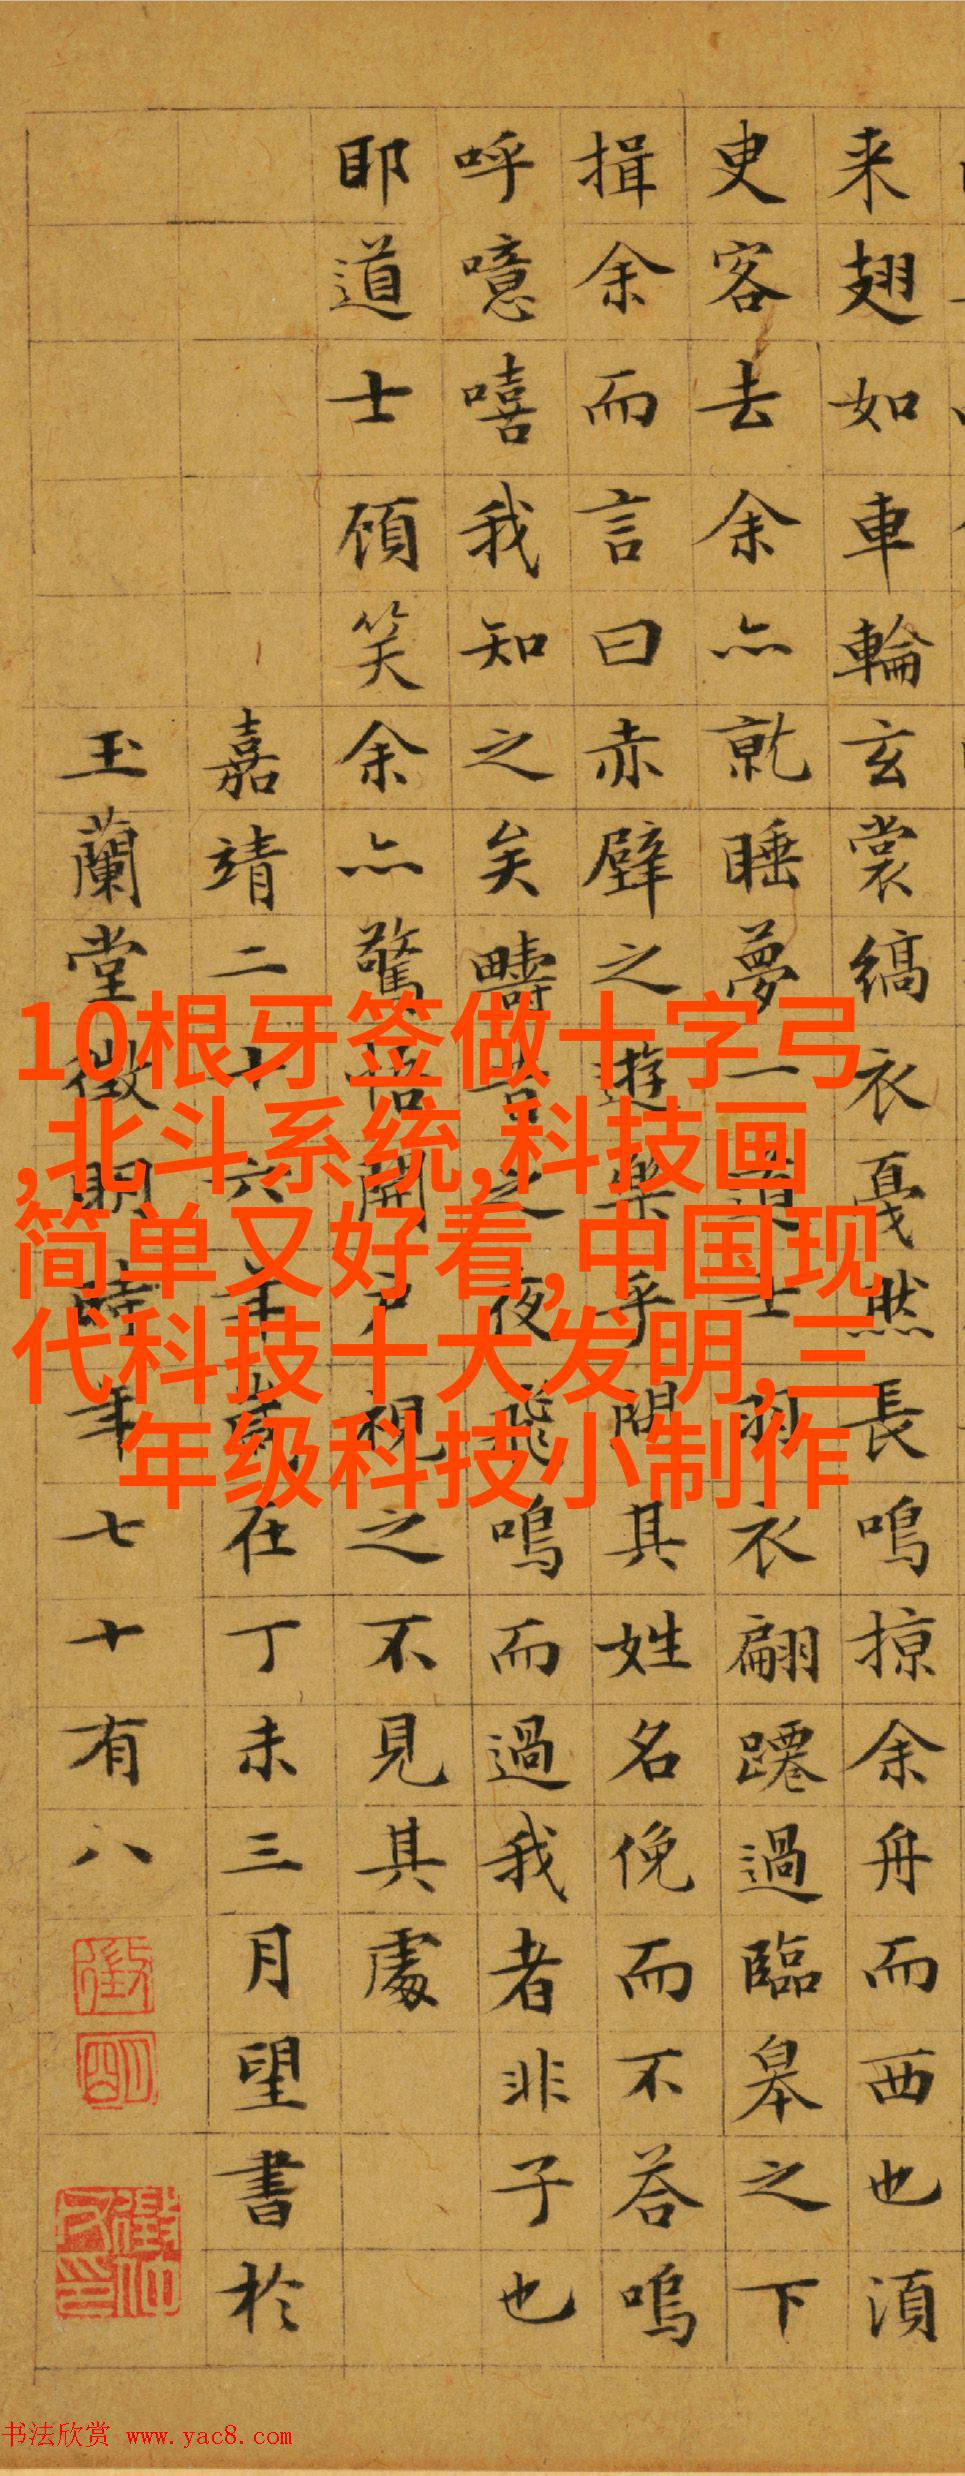 来翅如車輪玄裳縞衣戛然長鳴掠余舟而西也須
臾客去余亦就睡夢一道士羽衣翩躚過臨皋之下
揖余而言曰赤壁之遊樂乎問其姓名俛而不荅嗚
呼噫嘻我知之矣疇昔之夜飛鳴而過我者非子也
耶道士顧笑余亦驚悟開戶視之不見其處
嘉靖二十六年歲在丁未三月望書於
玉蘭堂徵明時年七十有八
徵
明
10根牙签做十字弓
,北斗系统,科技画
简单又好看,中国现
代科技十大发明,三
年级科技小制作
书法欣赏 www.yac8.com